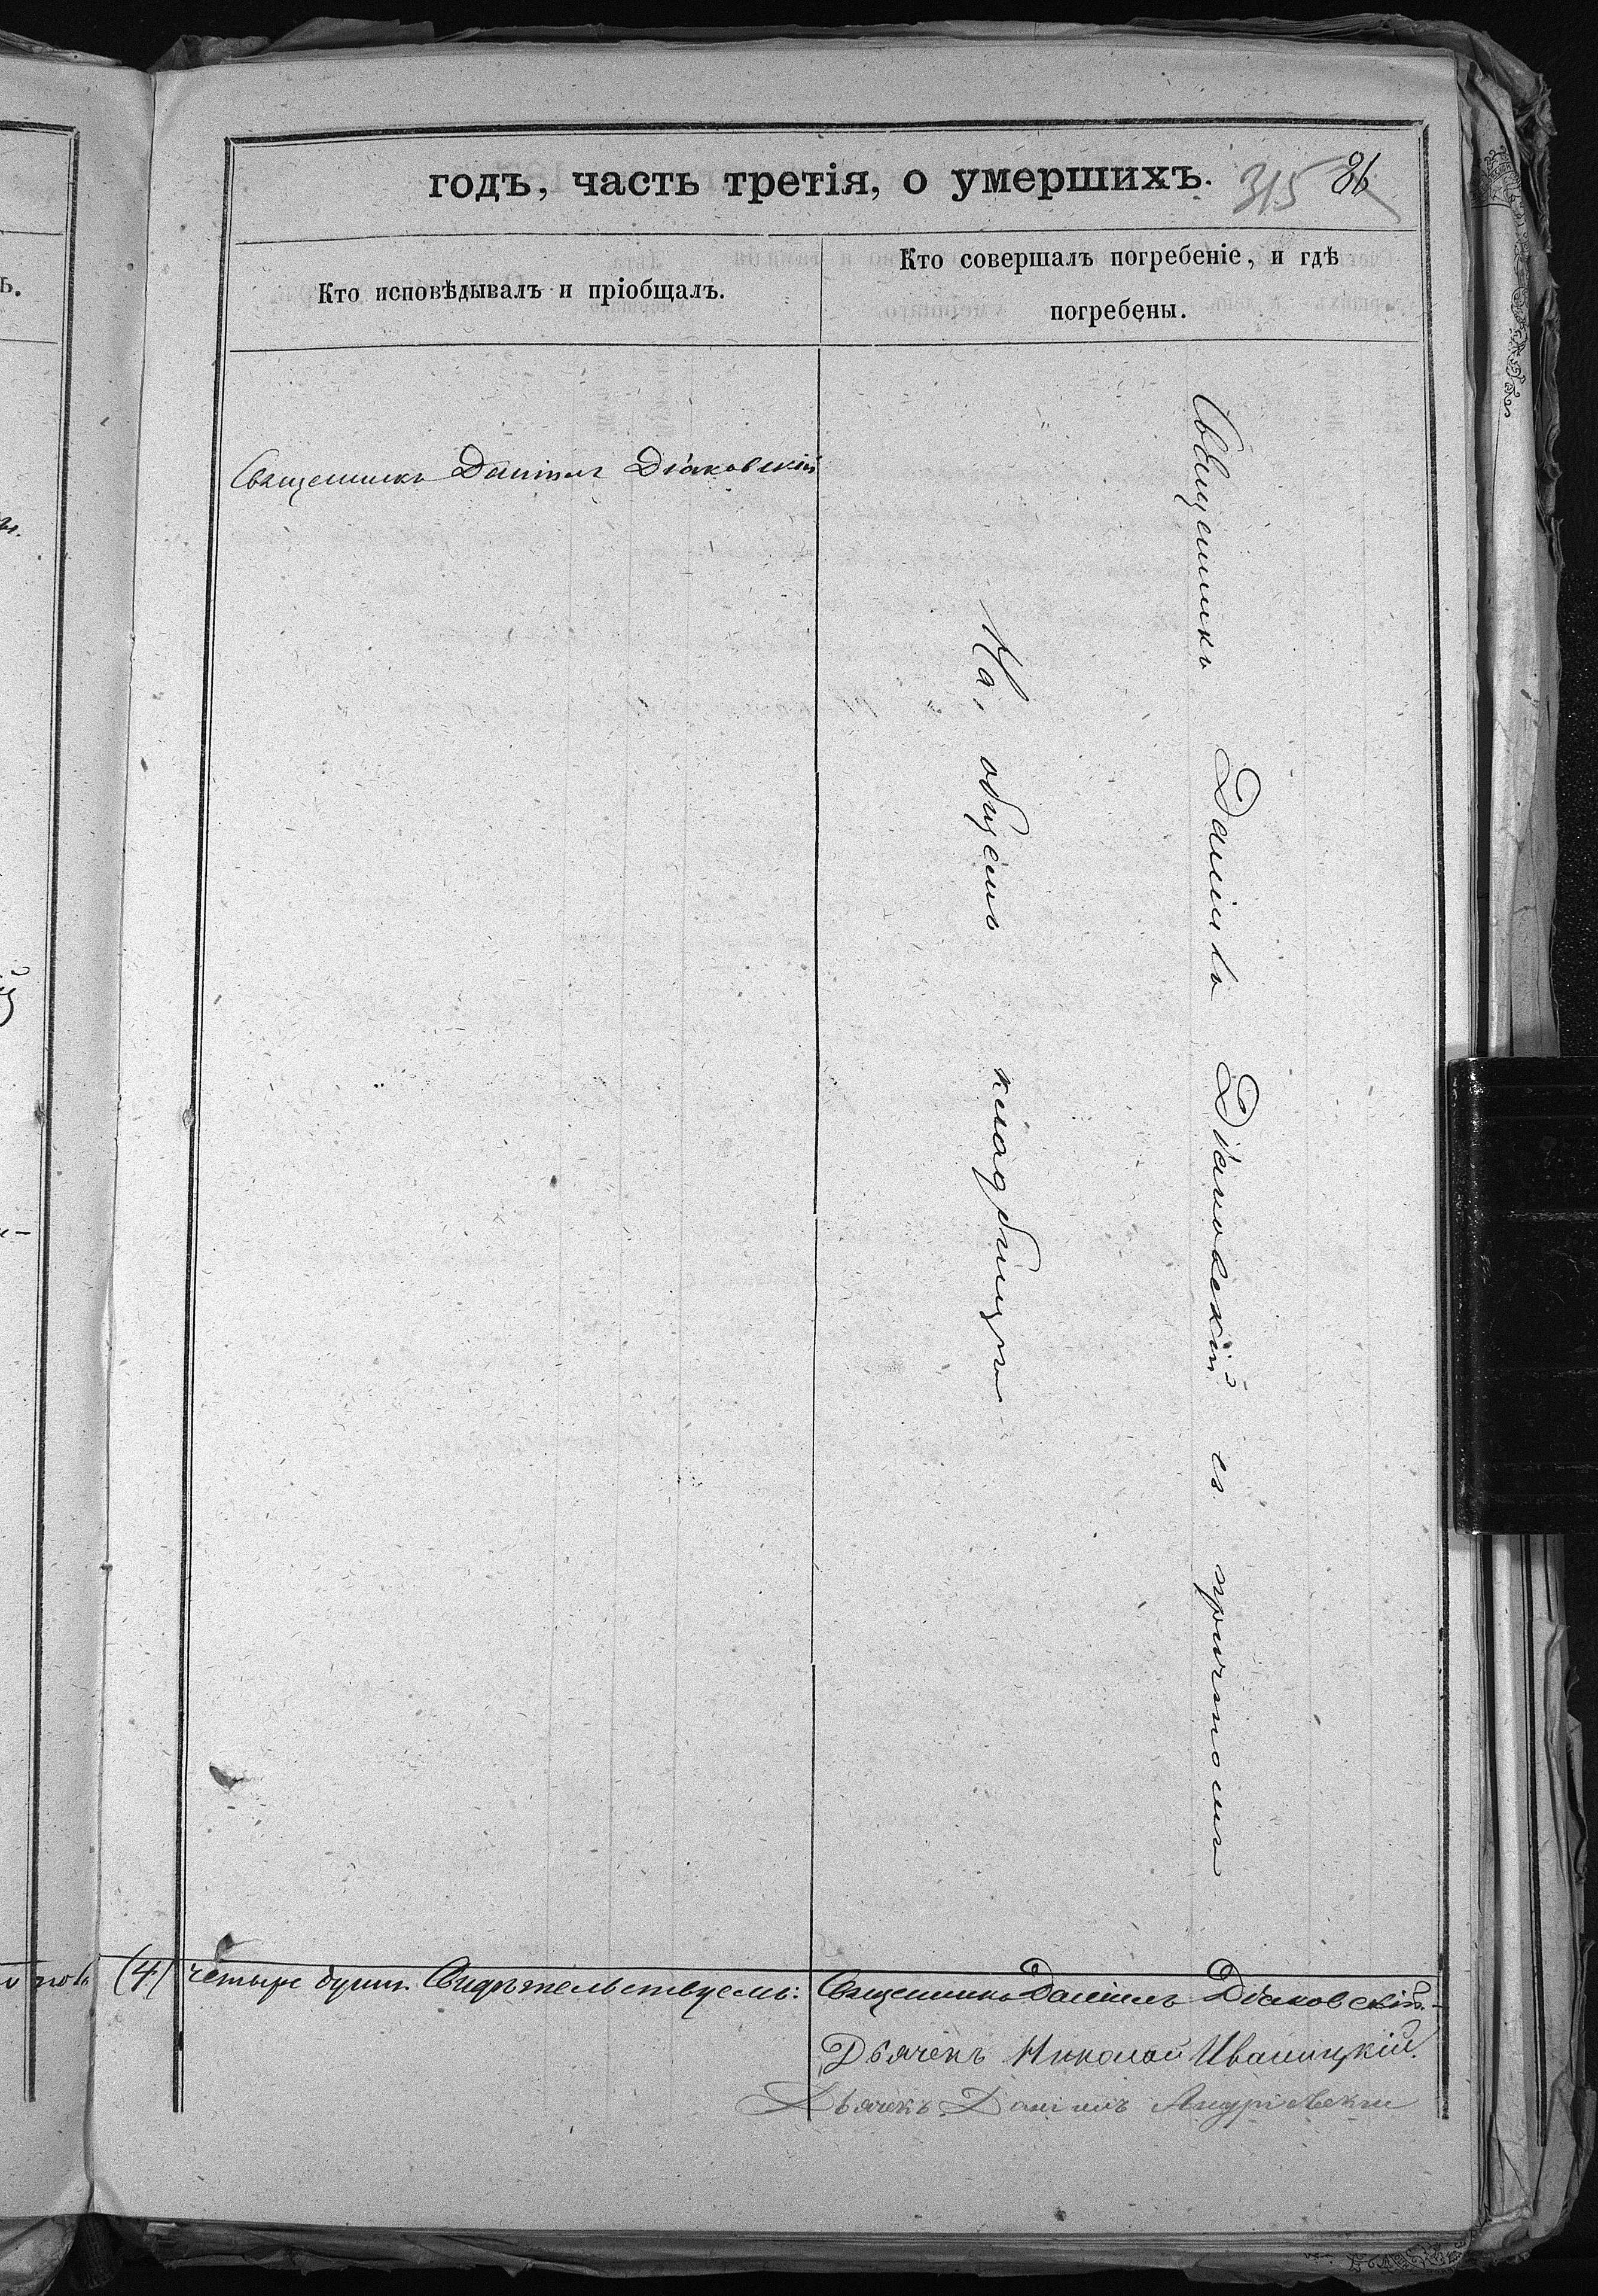 годъ, часть третія, о умершихъ. 315 86
Кто исповѣдывалъ и пріобщалъ.
Кто совершалъ погребеніе, и гдѣ
погребены.
Священникъ Даніилъ Діаковскій
Священникъ Даніилъ Діаковскій съ причтомъ
На общемъ кладбищѣ
(4) четыре души. Свидѣтельствуемъ: Священникъ Даніилъ Діаковскій.
Дьячекъ Николай Иваницкій.
Дьячекъ Даніилъ Андріевскій